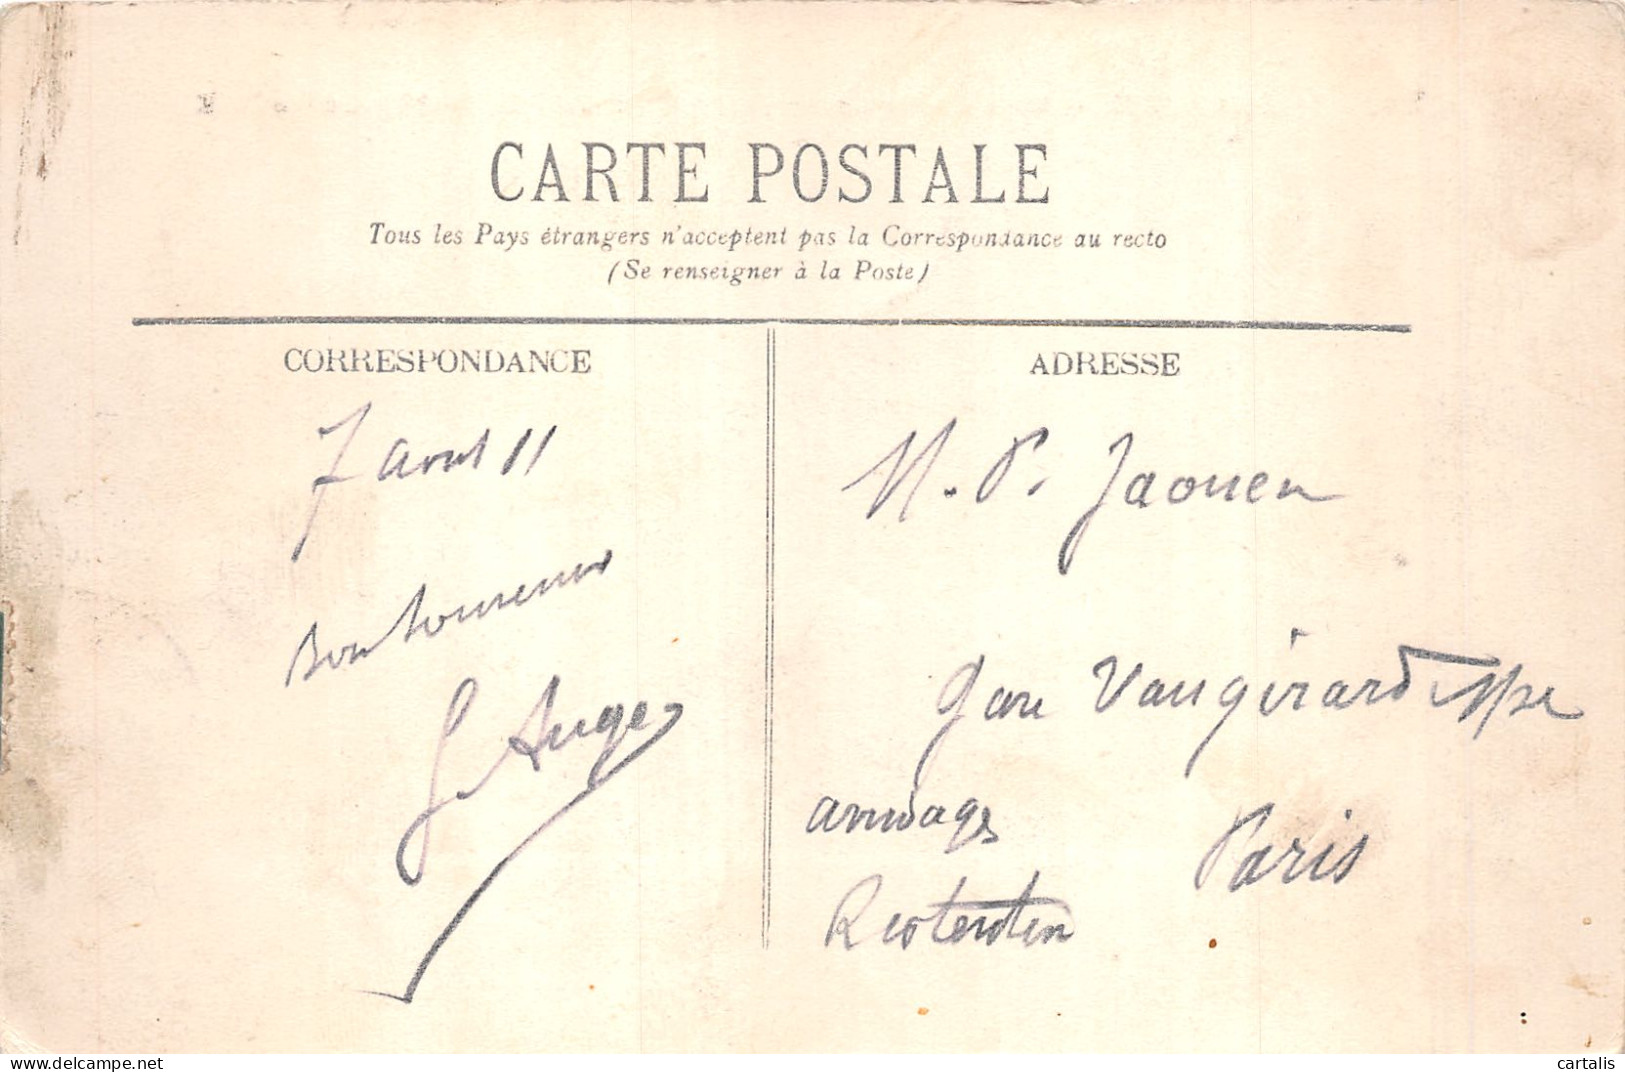 CARTE POSTALE
Tous les Pays étrangers n'acceptent pas la Correspondance au recto
(Se renseigner à la Poste)
CORRESPONDANCE
ADRESSE
7 avril 11
Bon souvenir
G. Auger
M. P. Jaouen
Gare Vaugirard
Paris
cartalis